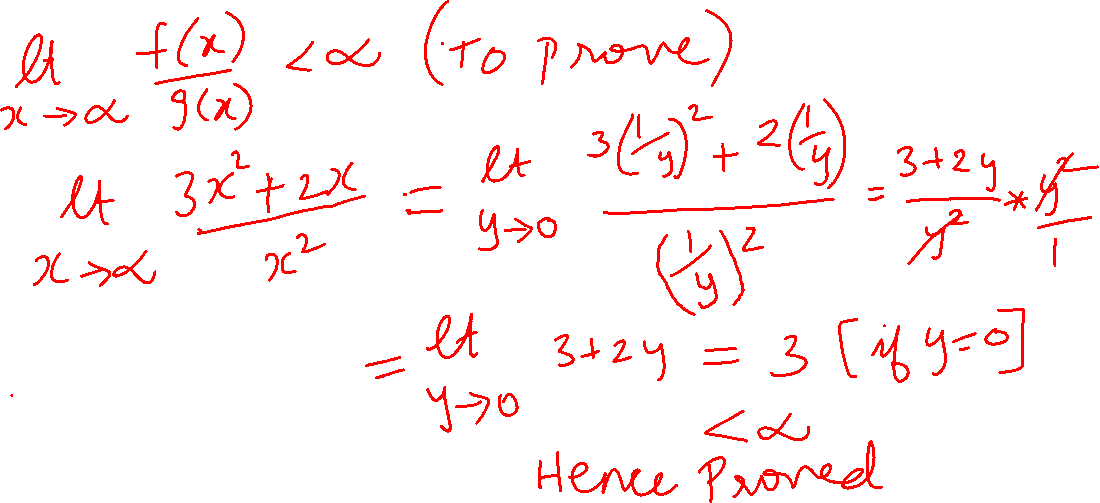 lt x→∝ f(x)/g(x) <∝ (To prove)
lt x→∝ (3x²+2x)/x² = lt y→0 (3(1/y)² + 2(1/y))/(1/y)² = (3+2y)/y² * y²/1
= lt y→0 3+2y = 3 [if y=0]
<∝
Hence Proved